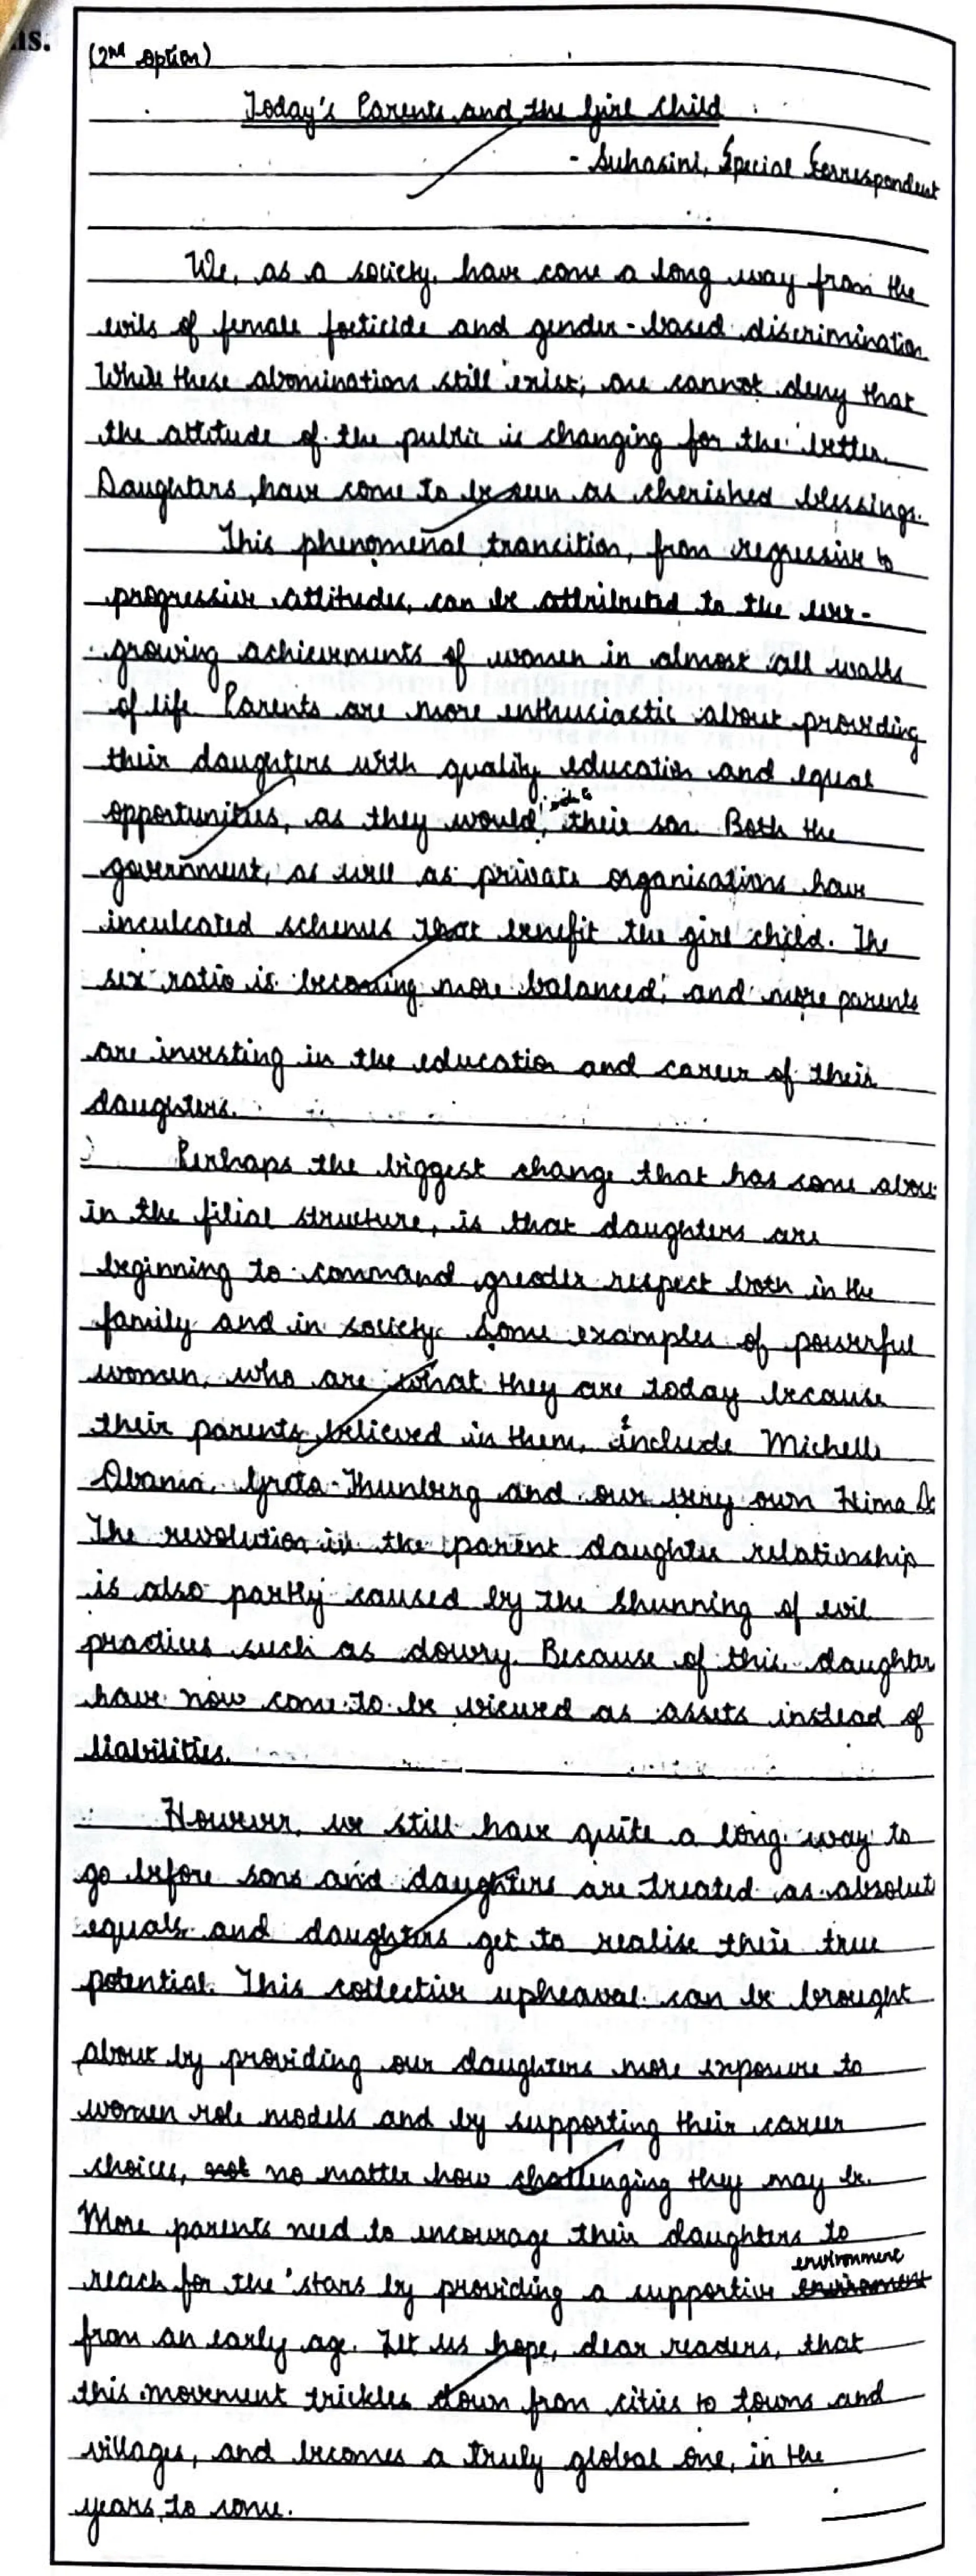 ns.
(2nd option)
Today's Parents and the Girl Child
- Suhasini, Special Correspondent
We, as a society, have come a long way from the
evils of female foeticide and gender-based discrimination
While these abominations still exist, one cannot deny that
the attitude of the public is changing for the better.
Daughters, have come to be seen as cherished blessings.
This phenomenal transition, from regressive to
progressive attitudes, can be attributed to the ever-
growing achievements of women in almost all walks
of life. Parents are more enthusiastic about providing
their daughters with quality education and equal
opportunities, as they would, with their son. Both the
government, as well as private organisations have
inculcated schemes that benefit the girl child. The
sex ratio is becoming more balanced, and more parents
are investing in the education and career of their
daughters.
Perhaps the biggest change that has come abou
in the filial structure, is that daughters are
beginning to command greater respect both in the
family and in society. Some examples of powerful
women, who are what they are today because
their parents believed in them, include Michelle
Obama, Greta Thunberg and our very own Hima Da
The revolution in the parent daughter relationship
is also partly caused by the shunning of evil
practices such as dowry. Because of this daughter
have now come to be viewed as assets instead of
liabilities.
However, we still have quite a long way to
go before sons and daughters are treated as absolut
equals and daughters get to realise their true
potential. This collective upheaval can be brought
about by providing our daughters more exposure to
women role models and by supporting their career
choices, not no matter how challenging they may be.
More parents need to encourage their daughters to
reach for the stars by providing a supportive environment
from an early age. Let us hope, dear readers, that
this movement trickles down from cities to towns and
villages, and becomes a truly global one, in the
years to come.